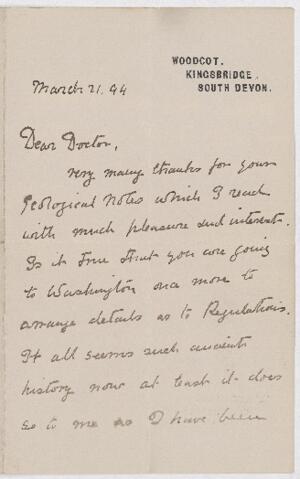 WOODCOT.
KINGSBRIDGE.
SOUTH DEVON.
March 21. 94
Dear Doctor,
Very many thanks for your
Geological Notes which I read
with much pleasure and interest.
Is it true that you are going
to Washington once more to
arrange details as to Regulations.
It all seems such ancient
history now at least it does
so to me as I have been